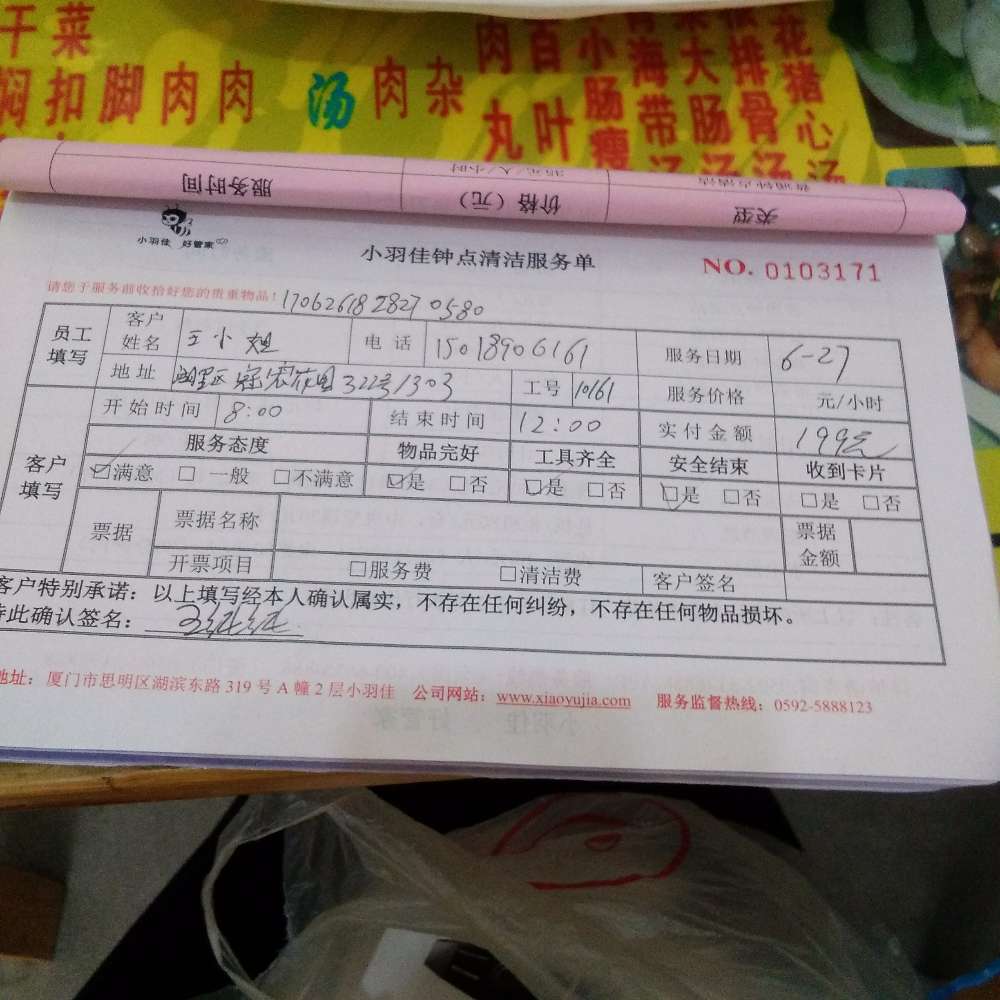 干菜 肉自小 海大排花
焖扣脚肉肉 汤 肉杂 丸叶肠带肠骨猪
瘦 心
汤汤汤汤
服务时间 价格（元） 类型
35元/人/小时 普通钟点清洁
小羽佳 好管家
小羽佳钟点清洁服务单 NO. 0103171
请您于服务前收拾好您的贵重物品！170626182827 0580
员工填写 客户姓名 王小姐 电话 15018906161 服务日期 6-27
地址 湖里区 322号1303 工号 10161 服务价格 元/小时
客户填写 开始时间 8:00 结束时间 12:00 实付金额 199元
服务态度 物品完好 工具齐全 安全结束 收到卡片
☑满意 □一般 □不满意 ☑是 □否 ☑是 □否 ☑是 □否 □是 □否
票据 票据名称 票据金额
开票项目 □服务费 □清洁费 客户签名
客户特别承诺：以上填写经本人确认属实，不存在任何纠纷，不存在任何物品损坏。
特此确认签名：
地址：厦门市思明区湖滨东路 319 号 A 幢 2 层小羽佳 公司网站：www.xiaoyujia.com 服务监督热线：0592-5888123